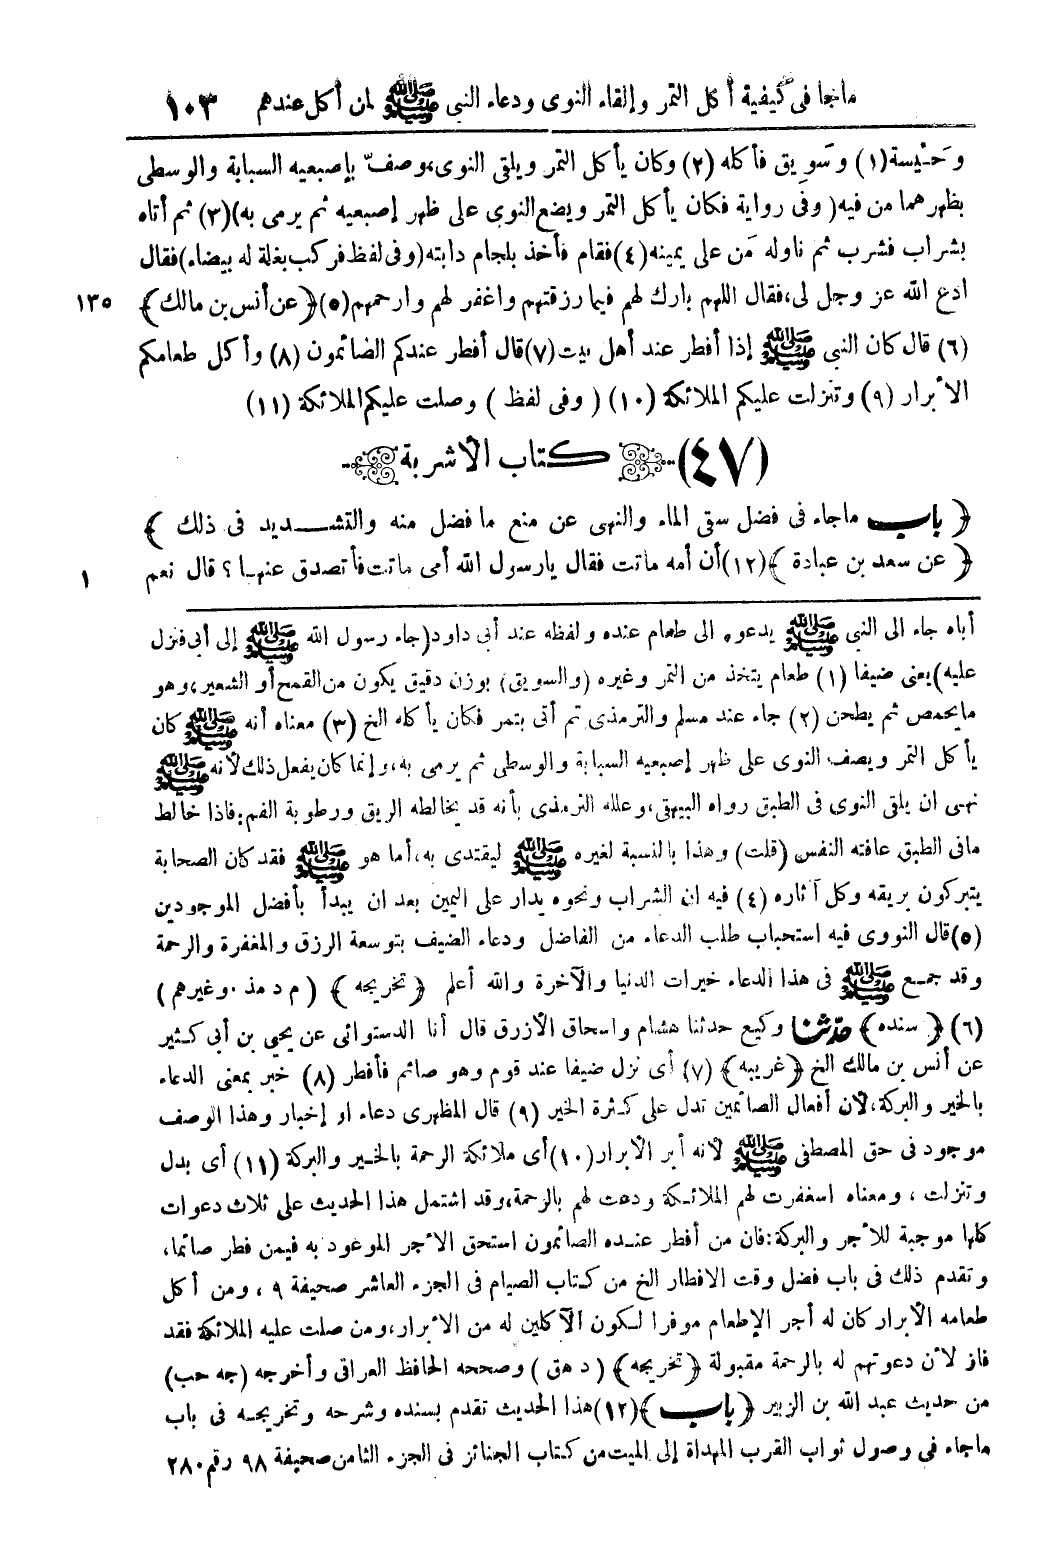 ماجاء في كيفية أكل التمر وإلقاء النوى ودعاء النبي ﷺ لمن أكل عندهم ١٠٣
وَحَيْسة(١) وسَوِيق فأكله (٢) وكان يأكل التمر ويلقى النوى،وصفّ بإصبعيه السبابة والوسطى
بظهرهما من فيه( وفى رواية فكان يأكل التمر ويضع النوى على ظهر إصبعيه ثم يرمى به)(٣) ثم أتاه
بشراب فشرب ثم ناوله مَن على يمينه(٤)فقام فأخذ بلجام دابته(وفى لفظ فركب بغلة له بيضاء)فقال
ادع الله عز وجل لى،فقال اللهم بارك لهم فيما رزقتهم واغفر لهم وارحمهم(٥)﴿عن أنس بن مالك﴾ ١٣٥
(٦) قال كان النبي ﷺ إذا أفطر عند أهل بيت(٧)قال أفطر عندكم الصائمون (٨) وأكل طعامكم
الأبرار (٩) وتنزلت عليكم الملائكة (١٠) ( وفى لفظ ) وصلت عليكم الملائكة (١١)
(٤٧) كتاب الأشربة
﴿ باب ماجاء فى فضل سقى الماء والنهى عن منع ما فضل منه والتشديد فى ذلك ﴾
﴿ عن سعد بن عبادة ﴾(١٢)أن أمه ماتت فقال يارسول الله أمى ماتت فأتصدق عنها ؟ قال نعم ١
أباه جاء الى النبي ﷺ يدعوه الى طعام عنده ولفظه عند أبى داود(جاء رسول الله ﷺ إلى أبى فنزل
عليه)يعنى ضيفا (١) طعام يتخذ من التمر وغيره (والسويق) بوزن دقيق يكون من القمح أو الشعير،وهو
ما يحمص ثم يطحن (٢) جاء عند مسلم والترمذى ثم أتى بتمر فكان يأكله الخ (٣) معناه أنه ﷺ كان
يأكل التمر ويصف النوى على ظهر إصبعيه السبابة والوسطى ثم يرمى به،وإنما كان يفعل ذلك لأنه ﷺ
نهى ان يلقى النوى فى الطبق رواه البيهقى،وعلله الترمذى بأنه قد يخالطه الريق ورطوبة الفم:فاذا خالط
مافى الطبق عافته النفس (قلت) وهذا بالنسبة لغيره ﷺ ليقتدى به،أما هو ﷺ فقد كان الصحابة
يتبركون بريقه وكل آثاره (٤) فيه ان الشراب ونحوه يدار على اليمين بعد ان يبدأ بأفضل الموجودين
(٥)قال النووى فيه استحباب طلب الدعاء من الفاضل ودعاء الضيف بتوسعة الرزق والمغفرة والرحمة
وقد جمع ﷺ فى هذا الدعاء خيرات الدنيا والآخرة والله أعلم ﴿تخريجه﴾ (م د مذ . وغيرهم)
(٦)﴿سنده﴾ حدّثنا وكيع حدثنا هشام واسحاق الأزرق قال أنا الدستوائى عن يحيى بن أبى كثير
عن أنس بن مالك الخ ﴿غريبه﴾ (٧) أى نزل ضيفا عند قوم وهو صائم فأفطر (٨) خبر بمعنى الدعاء
بالخير والبركة،لأن أفعال الصائمين تدل على كثرة الخير (٩) قال المظهرى دعاء او إخبار وهذا الوصف
موجود فى حق المصطفى ﷺ لأنه أبر الأبرار(١٠)أى ملائكة الرحمة بالخير والبركة (١١) أى بدل
وتنزلت ، ومعناه استغفرت لهم الملائكة ودعت لهم بالرحمة،وقد اشتمل هذا الحديث على ثلاث دعوات
كلها موجبة للأجر والبركة:فان من أفطر عنده الصائمون استحق الأجر الموعود به فيمن فطر صائما،
وتقدم ذلك فى باب فضل وقت الافطار الخ من كتاب الصيام فى الجزء العاشر صحيفة ٩ ، ومن أكل
طعامه الأبرار كان له أجر الإطعام موفرا لكون الآكلين له من الأبرار،ومن صلت عليه الملائكة فقد
فاز لأن دعوتهم له بالرحمة مقبولة ﴿تخريجه﴾ (د هق) وصححه الحافظ العراقى وأخرجه (جه حب)
من حديث عبد الله بن الزبير ﴿باب﴾(١٢)هذا الحديث تقدم بسنده وشرحه وتخريجه فى باب
ماجاء فى وصول ثواب القرب المهداة إلى الميت من كتاب الجنائز فى الجزء الثامن صحيفة ٩٨ رقم ٢٨٠